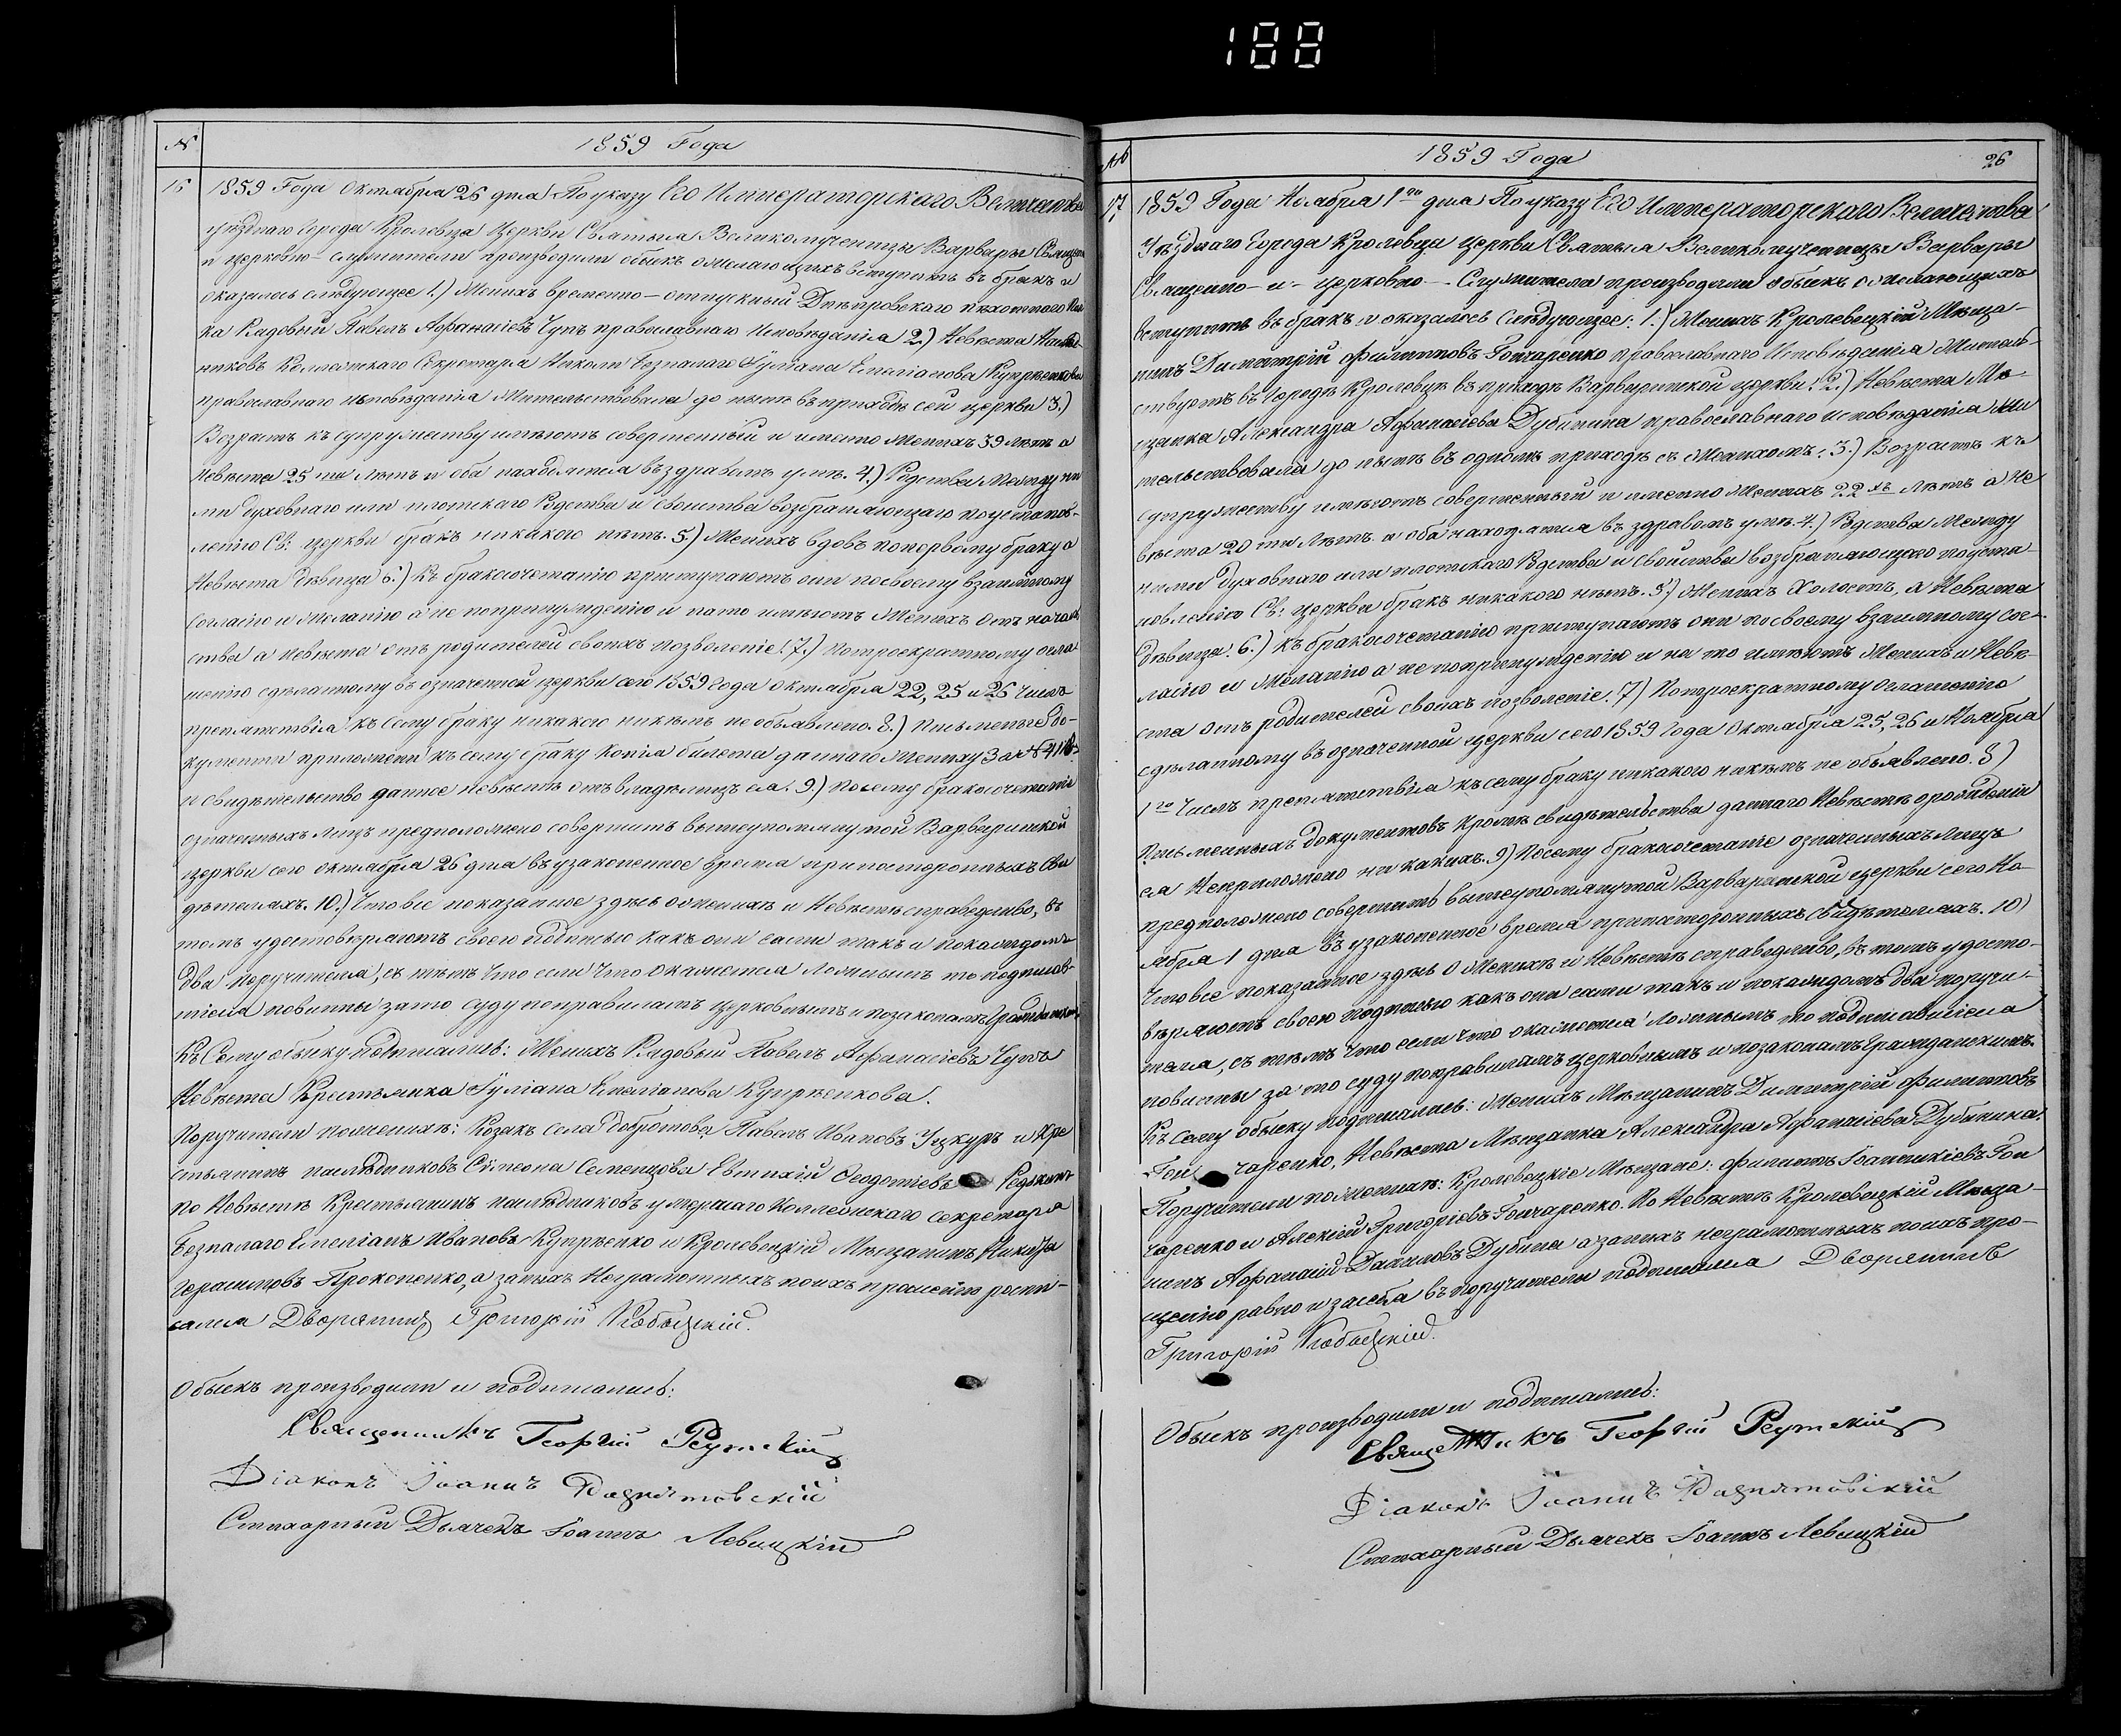 188
№
1859 Года
16
1859 Года Октября 26 дня По указу Его Императорскаго Величества
уѣзднаго города Кролевца Церкви Святыя Великомученицы Варвары Священно
и церковно-служители производили обыскъ о желающихъ вступить въ бракъ и
оказалось слѣдующее 1.) Женихъ временно-отпускный Днѣпровскаго пѣхотнаго Пол
ка Рядовый Павелъ Афанасіевъ Чупъ православнаго исповѣданія 2.) Невѣста Наслѣд
никовъ Коллежскаго Секретаря Николи Безпалаго Іуліана Емеліанова Купрѣенкова
православнаго исповѣданія Жительствовала до нынѣ въ приходѣ сей церкви 3.)
Возрастъ къ супружеству имѣютъ совершенный и имено Женихъ 39 лѣтъ а
Невѣста 25 ти лѣтъ и оба находятся въ здравомъ умѣ. 4.) Родства Между ни
ми духовнаго или плотскаго Родства и свойства возбраняющаго по установ-
ленію Св: церкви бракъ никакого нѣтъ. 5.) Женихъ вдовъ по первому браку а
Невѣста дѣвица 6.) Къ бракосочетанію приступаютъ они по своему взаимному
согласію и желанію а не по принужденію и на то имѣютъ Женихъ отъ началь
ства а невѣста отъ родителей своихъ позволеніе. 7.) По троекратному огла
шенію сдѣланному въ означенной церкви сего 1859 Года Октября 22, 25 и 26 числъ
препятствія къ сему браку никакого никѣмъ не объявлено. 8.) Письменные до-
кументы приложены къ сему браку копія билета даннаго Жениху за №
и свидѣтельство данное невѣстѣ отъ владѣлицъ ея. 9.) Посему бракосочетаніе
означенныхъ лицъ предположено совершить вышеупомянутой Варваринской
церкви сего Октября 26 дня въ узаконенное время при постороннихъ сви
дѣтеляхъ. 10.) Что все показанное здѣсь о женихѣ и Невѣстѣ справедливо, въ
томъ удостовѣряютъ своею подписью какъ они сами такъ и по каждомъ
два поручителя, съ тѣмъ что если что окажется Ложнымъ то подписав-
шіеся повинны за то суду по правиламъ церковнымъ и по законамъ Гражданскимъ
Къ сему обыску подписались: Женихъ Рядовый Павелъ Афанасіевъ Чупъ
Невѣста Крестьянка Іуліана Емеліанова Купрѣенкова.
Поручители по женихѣ: Козакъ села Добротова Павелъ Ивановъ Уцкуръ и Кре
стьянинъ наслѣдниковъ Сѵмеона Семенцова Евтихій Феодотіевъ Редькинъ
по Невѣстѣ Крестьянинъ наслѣдниковъ умершаго Коллежскаго секретаря
Безпалаго Емеліанъ Ивановъ Купрѣенко и Кролевецкій Мѣщанинъ Никифоръ
Герасимовъ Прокопенко, а за ныхъ Неграмотныхъ по ихъ прошенію роспи-
сался Дворянинъ Григорій Кобыцкій.
Обыскъ производили и подписались:
Священникъ Георгій Реутскій
Діаконъ Іоаннъ Рацнятовскій
Стихарный Дьячекъ Іоаннъ Левицкій
№
1859 Года
26
17.
1859 Года Ноября 1го дня По указу Его Императорскаго Величества
Уѣзднаго Города Кролевца церкви Святыя Великомученицы Варвары
Священно-и-церковно-Служители производили обыскъ о желающихъ
вступить въ бракъ и оказалось слѣдующее: 1.) Женихъ Кролевецкій Мѣща-
нинъ Димитрій Филиповъ Гончаренко православнаго Исповѣданія Житель-
ствуетъ въ Городѣ Кролевцѣ въ приходѣ Варваринской церкви: 2.) Невѣста Мѣ-
щанка Александра Афанасіева Дубинина православнаго исповѣданія Жи
тельствовала до нынѣ въ одномъ приходѣ съ Женихомъ: 3.) Возрастъ къ
супружеству имѣютъ совершенный и имено Женихъ 22 хъ лѣтъ а Не
вѣста 20 ти лѣтъ. и оба находятся въ здравомъ умѣ. 4.) Родства Между
ними духовнаго или плотскаго Родства и свойства возбраняющаго по уста-
новленію Св: церкви бракъ никакого нѣтъ. 5.) Женихъ Холостъ, а Невѣста
дѣвица. 6.) Къ бракосочетанію приступаютъ они по своему взаимному сог-
ласію и Желанію а не по принужденію и на то имѣютъ Женихъ и Невѣ-
ста отъ родителей своихъ позволеніе. 7.) По троекратному Оглашенію
сдѣланному въ означенной церкви сего 1859 Года Октября 25, 26 и Ноября
1го числъ препятствія къ сему браку никакого никѣмъ не объявлено. 8)
Письменныхъ документовъ кромѣ свидѣтельства даннаго Невѣстѣ о рожденіи
ея Неприложено ни какихъ. 9) Посему бракосочетаніе означенныхъ лицъ
предположено совершить вышеупомянутой Варваринской церкви сего Но-
ября 1 дня въ узаконенное время при постороннихъ свидѣтеляхъ. 10)
Что все показанное здѣсь о Женихѣ и Невѣстѣ справедливо, въ томъ удосто-
вѣряютъ своею подписью какъ они сами такъ и по каждомъ два поручи-
теля, съ тѣмъ что если что окажется Ложнымъ то подписавшіеся
повинны за то суду по правиламъ церковнымъ и по законамъ Гражданскимъ.
Къ сему обыску подписались: Женихъ Мѣщанинъ Димитрій Филиповъ
Гон чаренко, Невѣста Мѣщанка Александра Афанасіева Дубинина.
Поручители по Женихѣ: Кролевецкіе Мѣщане: Филипъ Іоанникіевъ Гон
чаренко и Алексій Григоріевъ Гончаренко. По Невѣстѣ Кролевецкій Мѣща-
нинъ Афанасій Даниловъ Дубина а за ныхъ неграмотныхъ по ихъ про-
шенію равно и за себя въ поручители подписался Дворянинъ
Григорій Кобыцкій.
Обыскъ производили и подписались:
Священникъ Георгій Реутскій
Діаконъ Іоаннъ Рацнятовскій
Стихарный Дьячекъ Іоаннъ Левицкій